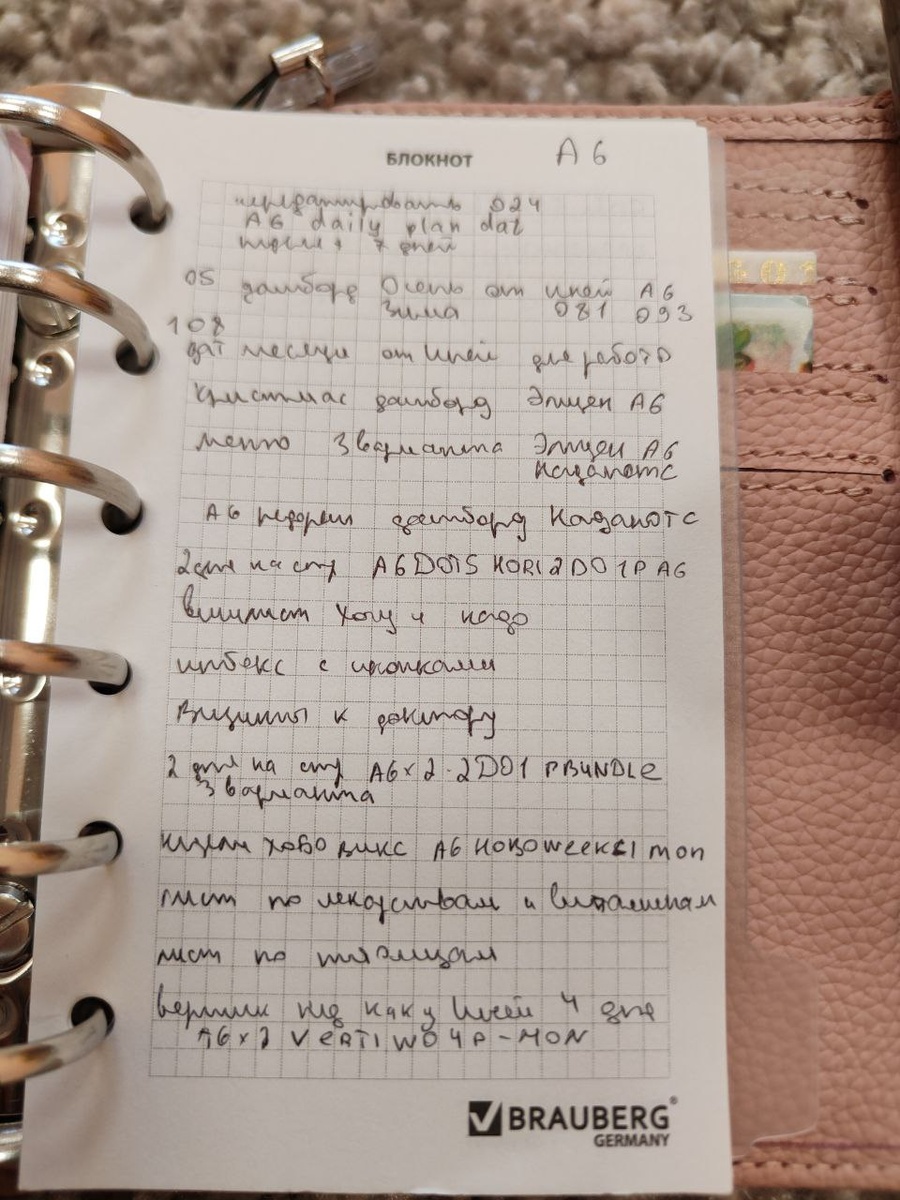 БЛОКНОТ A6
редактировать 024
A6 daily plan dat
неделя 7 дней
05 дашборд Осень от Иней A6
Зима 081 093
108
дат месяцы от Иней для работы
Кристмас дашборд Эпщен A6
меню 3 варианта Эпщен A6
Кацапотс
A6 дашборд Кадапотс
2 дня на стр A6DOTS HORI2DO1P A6
вишлист хочу и надо
индекс с иконками
Визиты к доктору
2 дня на стр A6x2-2DO1 PBUNDLE
3 варианта
хобо викс A6 HOBOWEEKS1 mon
лист по лекарствам и витаминам
лист по
вертик нед как у Иней 4 дня
A6x2 VERTIWO4P-MON
BRAUBERG®
GERMANY